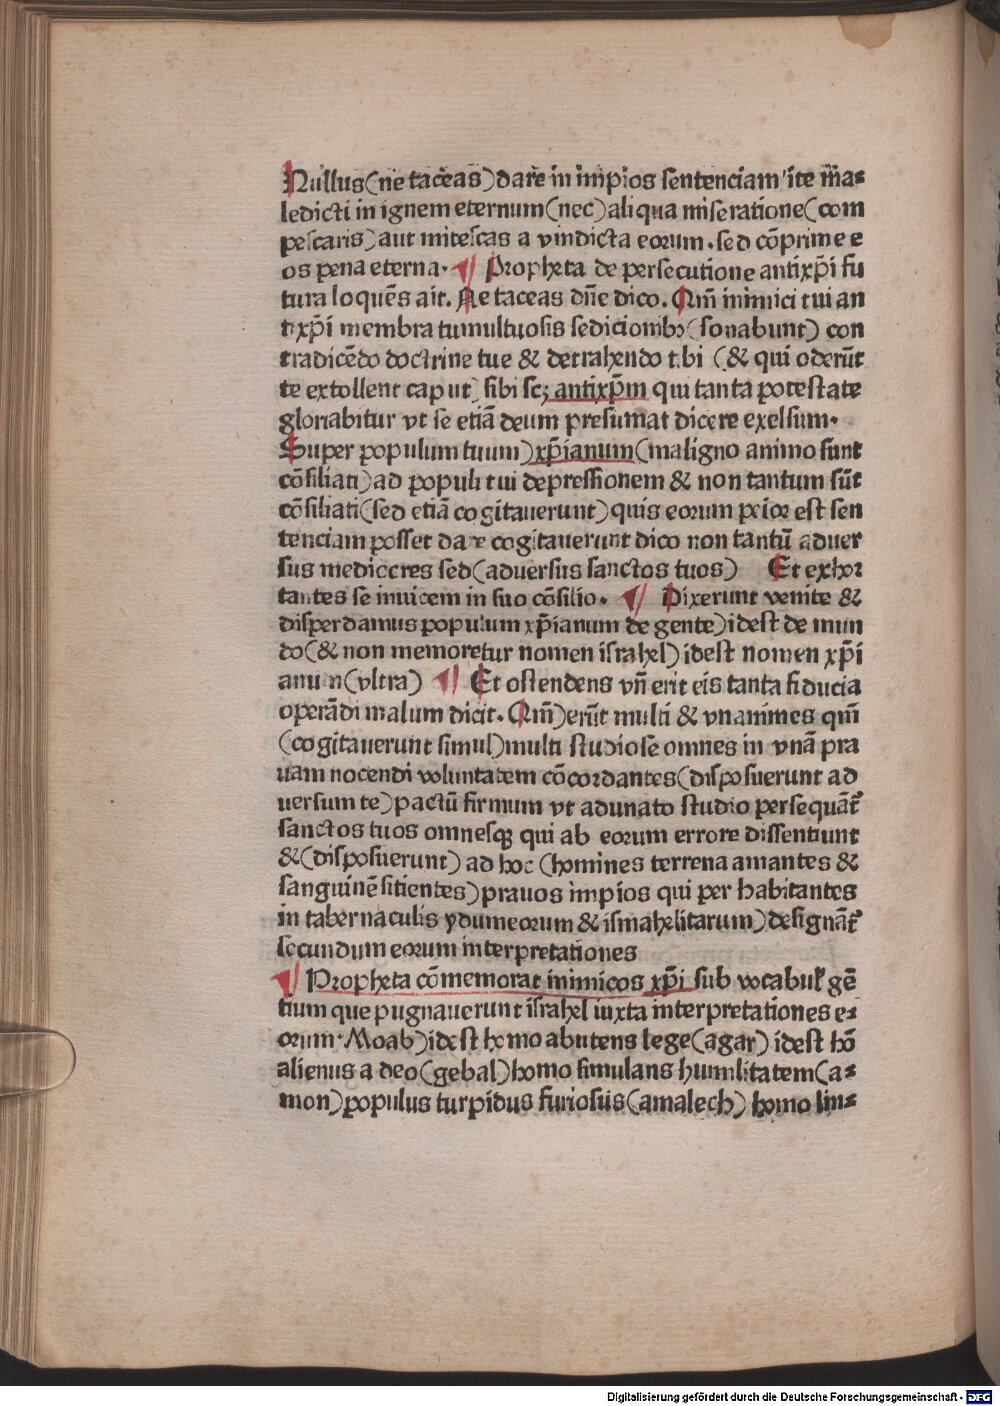 Nullus (ne taceas) dare in impios sentenciam ite ma⸗
ledicti in ignem eternum (nec) aliqua miseratione (com
pescaris) aut mitescas a vindicta eorum. sed cōprime e
os pena eterna. ¶ Propheta de persecutione antixp̄i fu
tura loquēs ait. Ne taceas dn̄e dico. Qm̄ inimici tui an
tixp̄i membra tumultuosis sedicionibꝫ (sonabunt) con
tradicēdo doctrine tue & detrahendo tibi (& qui oderūt
te extollent caput) sibi scꝫ antixp̄m qui tanta potestate
gloriabitur vt se etiā deum presumat dicere exelsum.
Super populum tuum) xp̄ianum (maligno animo sunt
cōsiliati) ad populi tui depressionem & non tantum sūt
cōsiliati (sed etiā cogitauerunt) quis eorum peior est sen
tenciam posset dare cogitauerunt dico non tantū aduer
sus mediocres sed (aduersus sanctos tuos) Et exhor
tantes se inuicem in suo cōsilio. ¶ Dixerunt venite &
disperdamus populum xp̄ianum de gente) idest de mun
do (& non memoretur nomen israhel) idest nomen xp̄i
anum (vltra) ¶ Et ostendens vn̄ erit eis tanta fiducia
operādi malum dicit. Qm̄) erūt multi & vnanimes qm̄
(cogitauerunt simul) multi studiose omnes in vnā pra
uam nocendi voluntatem cōcordantes (disposuerunt ad
uersum te) pactū firmum vt adunato studio persequāt᷑
sanctos tuos omnesqꝫ qui ab eorum errore dissentiunt
& (disposuerunt) ad hoc (homines terrena amantes &
sanguinē sitientes) prauos impios qui per habitantes
in tabernaculis ydumeorum & ismahelitarum) designāt᷑
secundum eorum interpretationes
¶ Propheta cōmemorat inimicos xp̄i sub vocabul' gē
tium que pugnauerunt israhel iuxta interpretationes e⸗
orum. Moab) idest homo abutens lege (agar) idest hō
alienus a deo (gebal) homo simulans humilitatem (a⸗
mon) populus turpidus furiosus (amalech) homo lin⸗
Digitalisierung gefördert durch die Deutsche Forschungsgemeinschaft - DFG